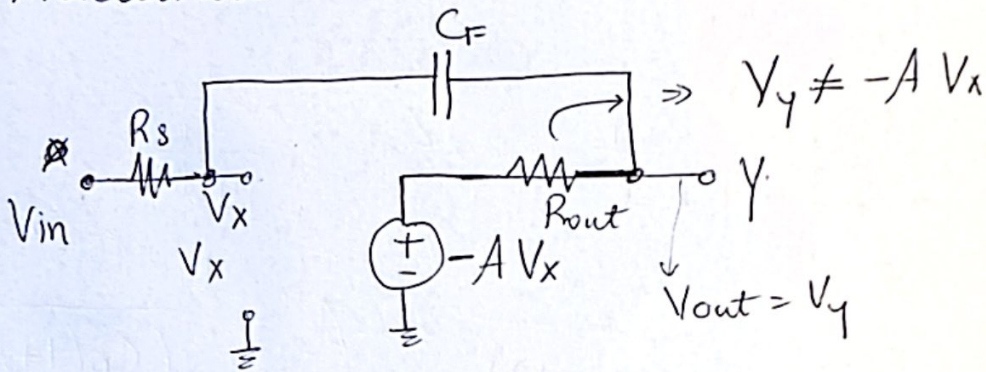 C_F
V_y ≠ -A V_x
R_s
V_in
V_x
R_out
Y
V_x
+
-
-A V_x
V_out = V_y